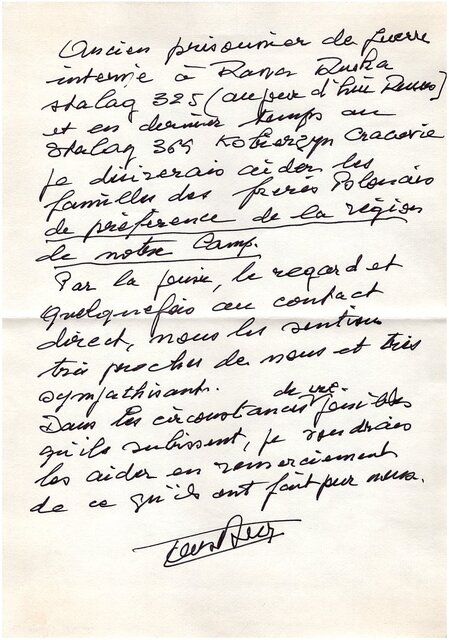 Ancien prisonnier de guerre
interné à Rawa Ruska
stalag 325 (aujourd'hui Russe)
et en dernier temps au
Stalag 369 Kobierzyn Cracovie
je désirerais aider les
familles des frères Polonais
de préférence de la région
de notre Camp.
Par la pensée, le regard et
quelquefois au contact
direct, nous les sentions
très proches de nous et très
sympathisants.
de vie
Dans les circonstances pénibles
qu'ils subissent, je voudrais
les aider en remerciement
de ce qu'ils ont fait pour nous.